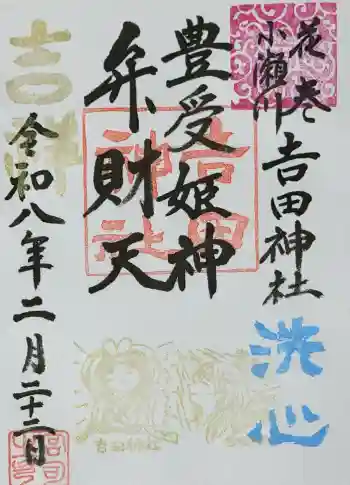 花巻
小瀬川
吉田神社
豊受姫神
弁財天
吉田
神社
吉祥
令和八年二月二十二日
洗心
吉田神社